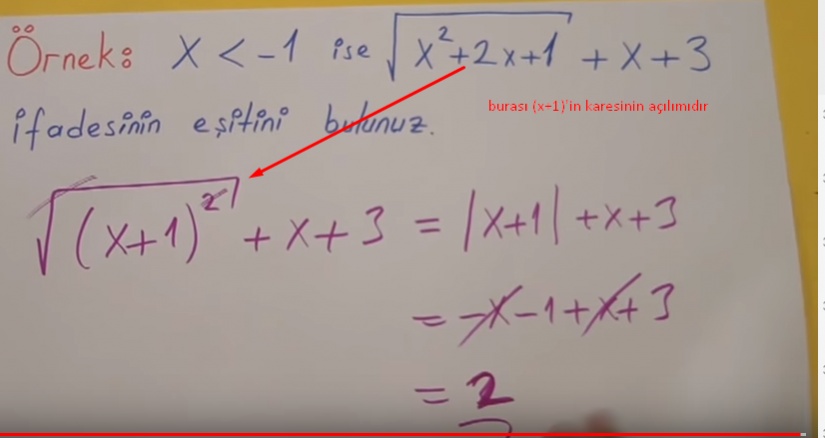 Örnek: x < -1 ise √(x²+2x+1) + x + 3
burası (x+1)'in karesinin açılımıdır
ifadesinin eşitini bulunuz.
√((x+1)²) + x + 3 = |x+1| + x + 3
= -x - 1 + x + 3
= 2